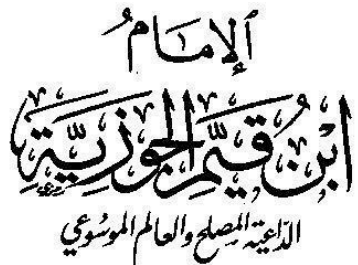 الإمامُ
ابْنُ قَيِّمِ الجَوْزِيَّةِ
الدّاعية المصلح والعالم الموسُوعي